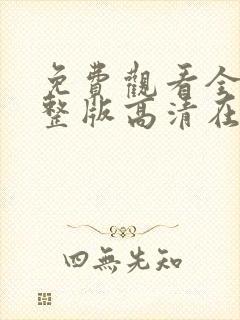 免費觀看全
整版高清在
四無先知